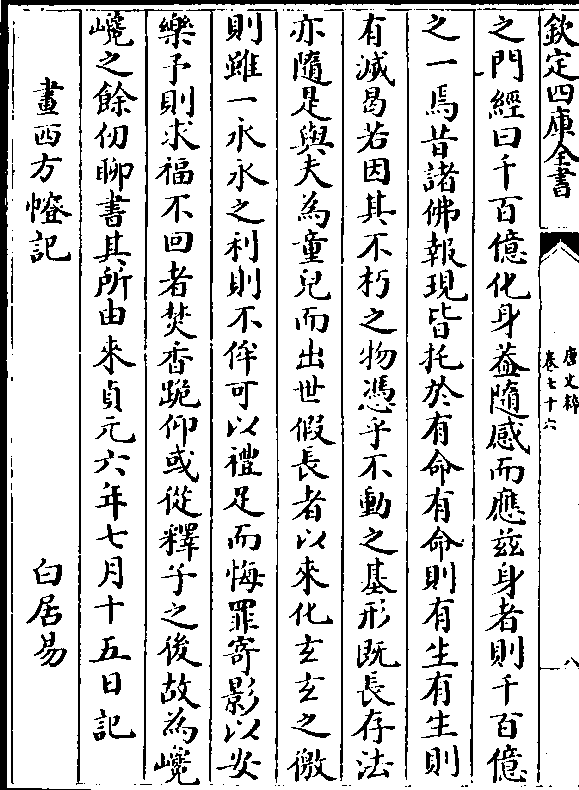 欽定四庫全書
唐文粹
卷七十六
八
之門經曰千百億化身葢隨感而應兹身者則千百億
之一焉昔諸佛報現皆托於有命有命則有生有生則
有滅曷若因其不朽之物憑乎不動之基形既長存法
亦隨是與夫為童兒而出世假長者以來化玄玄之徼
則雖一永永之利則不侔可以禮足而悔罪寄影以安
樂予則求福不回者焚香跪仰或從釋子之後故為巉
巉之餘仞聊書其所由來貞元六年七月十五日記
畫西方㡧記
白居易